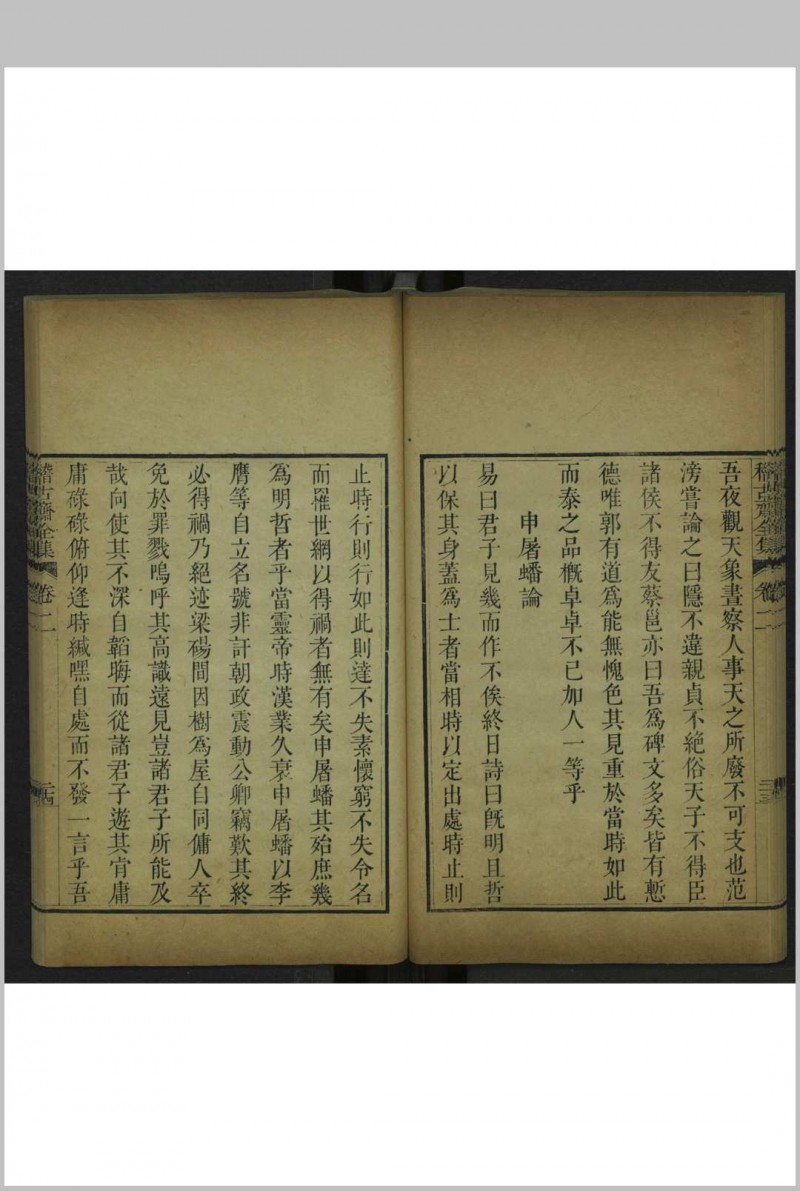 稽古齋全集
卷二
吾夜觀天象晝察人事天之所廢不可支也范
滂嘗論之曰隱不違親貞不絕俗天子不得臣
諸侯不得友蔡邕亦曰吾爲碑文多矣皆有慙
德唯郭有道爲能無愧色其見重於當時如此
而泰之品概卓卓不已加人一等乎
申屠蟠論
易曰君子見幾而作不俟終日詩曰旣明且哲
以保其身蓋爲士者當相時以定出處時止則
止時行則行如此則達不失素懷窮不失令名
而罹世網以得禍者無有矣申屠蟠其殆庶幾
爲明哲者乎當靈帝時漢業久衰申屠蟠以李
膺等自立名號非訐朝政震動公卿竊歎其終
必得禍乃絕迹梁碭間因樹爲屋自同傭人卒
免於罪戮嗚呼其高識遠見豈諸君子所能及
哉向使其不深自韜晦而從諸君子遊其肯庸
庸碌碌俯仰逢時緘嘿自處而不發一言乎吾
稽古齋全集
卷二